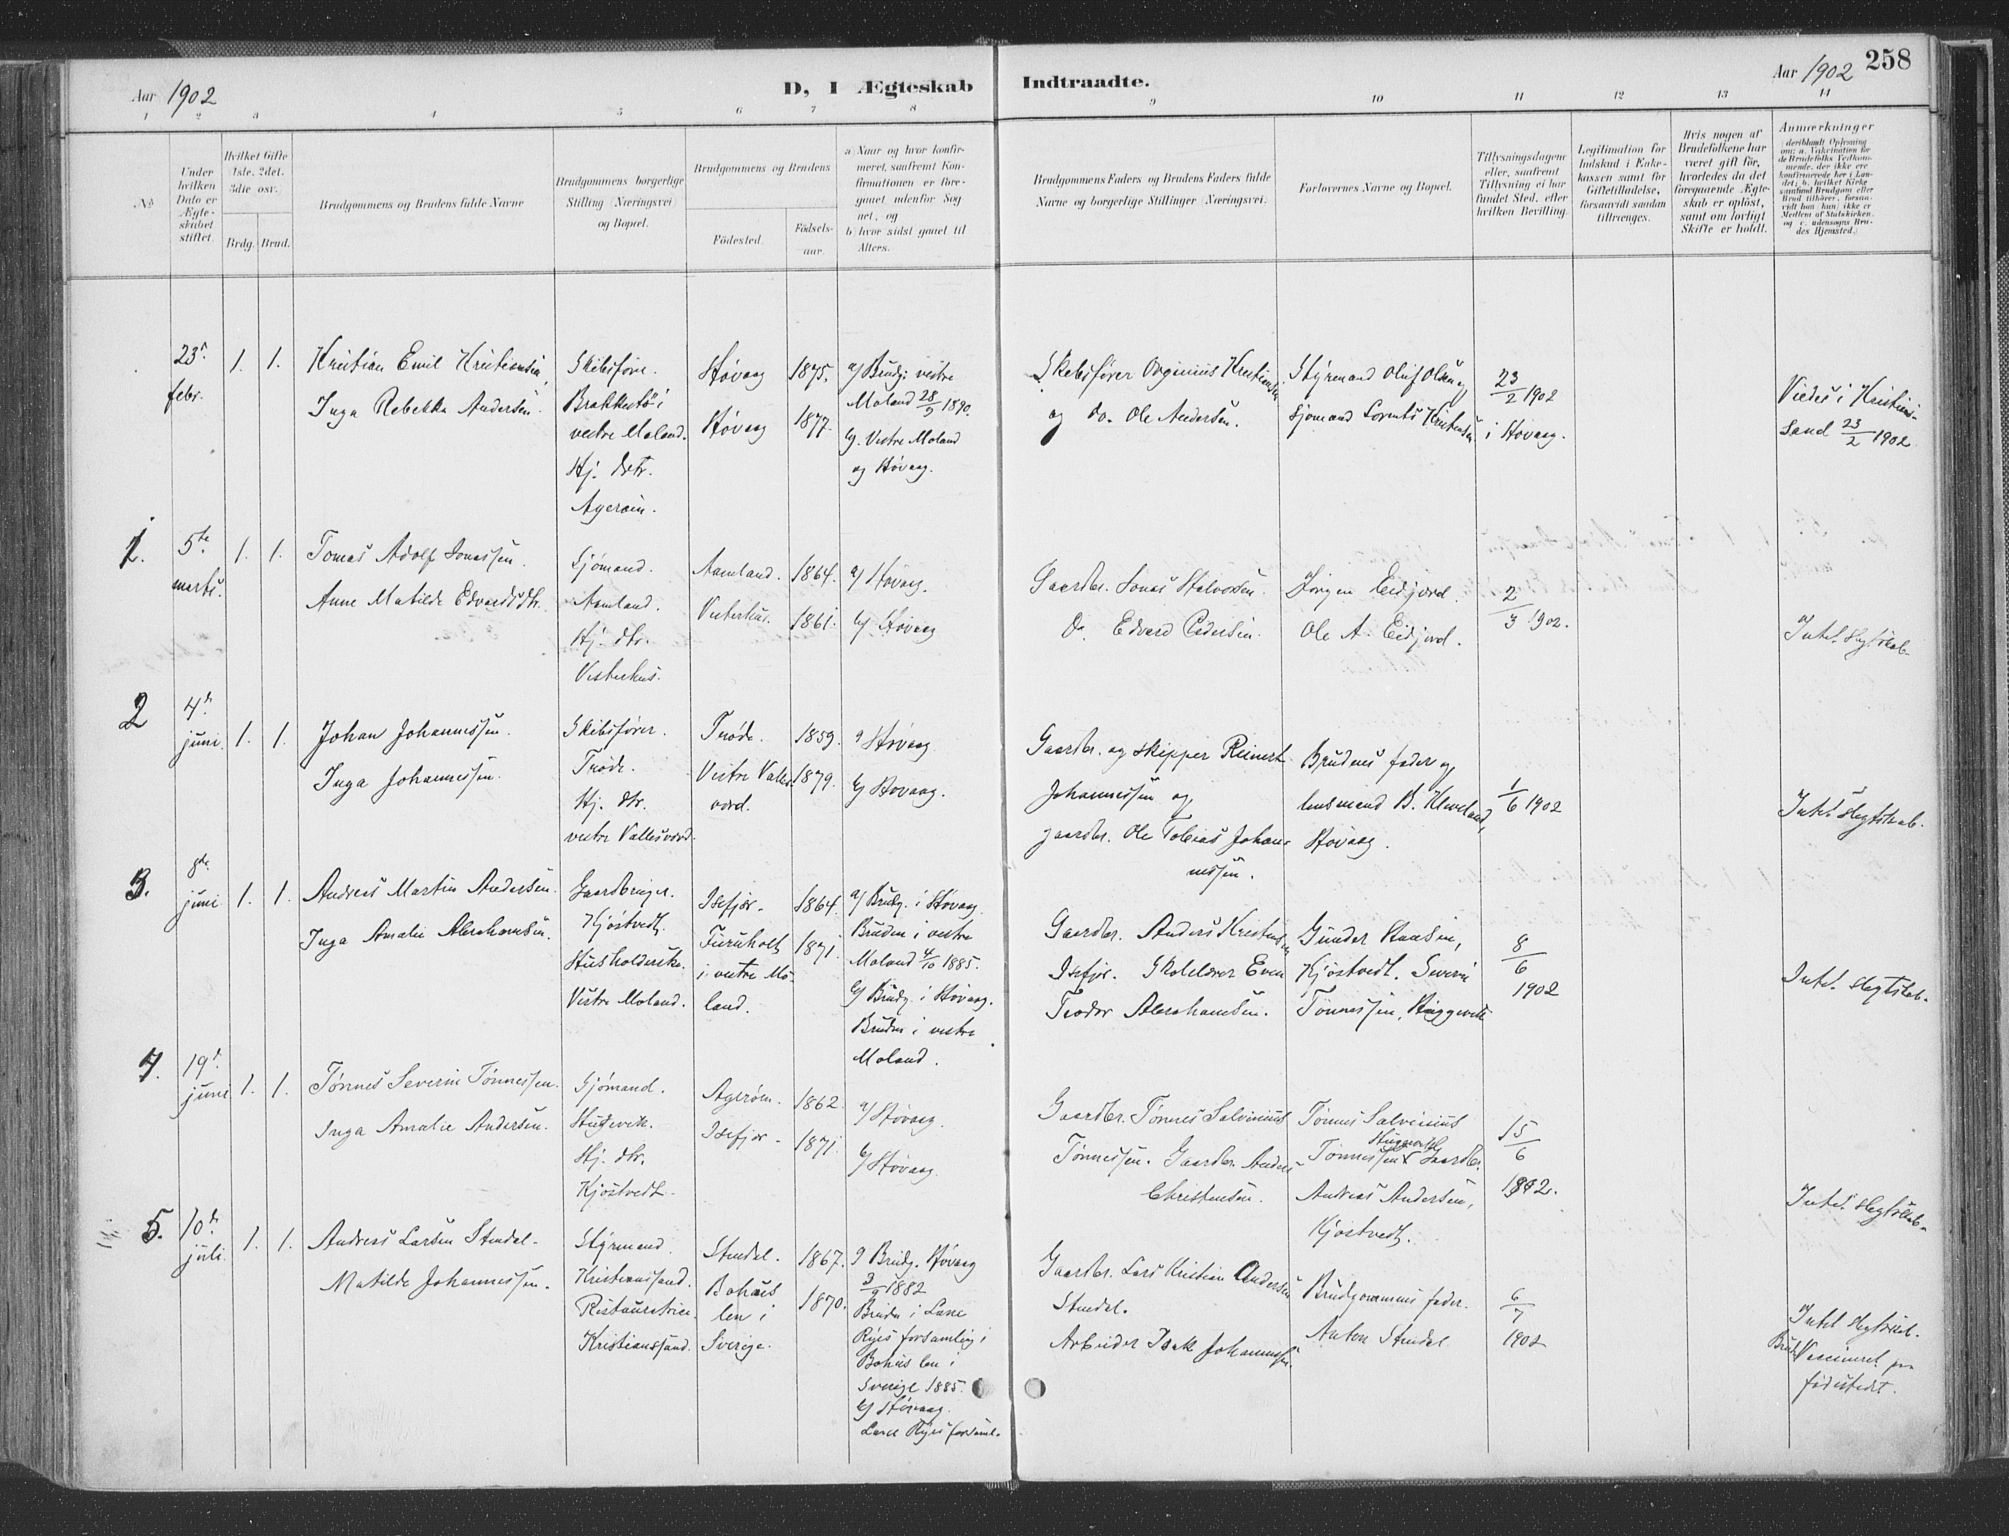 Aar 1902
D, I Ægteskab Indtraadte.
Aar 1902 258
1 2 3 4 5 6 7 8 9 10 11 12 13 14
No
Under hvilken Dato er Ægteskabet stiftet.
Hvilket Gifte 1ste, 2det, 3die osv.
Brdg. Brud.
Brudgommens og Brudens fulde Navne
Brudgommens borgerlige Stilling (Næringsvei) og Bopæl.
Brudgommens og Brudens
Fødested.
Fødselsaar.
a) Naar og hvor konfirmeret, saafremt Konfirmationen er foregaaet udenfor Sognet, og
b) hvor sidst gaaet til Alters.
Brudgommens Faders og Brudens Faders fulde Navne og borgerlige Stillinger (Næringsvei).
Forlovernes Navne og Bopæl.
Tillysningsdagene eller, saafremt Tillysning ei har fundet Sted, efter hvilken Bevilling.
Legitimation for Indskud i Enkekassen samt for Giftetilladelse, forsaavidt saadan tiltrænges.
Hvis nogen af Brudefolkene har været gift før, hvorledes da det foregaaende Ægteskab er opløst, samt om lovligt Skifte er holdt.
Anmærkninger
(deriblandt Oplysning om: a. Vakcination for de Brudefolks Vedkommende, der ikke ere konfirmerede her i Landet; b. hvilket Kirkesamfund Brudgom eller Brud tilhører, forsaavidt han (hun) ikke er Medlem af Statskirken, og c. udensogns Brudes Hjemsted.)
23de febr. 1. 1.
Kristian Emil Kristiansen,
Inga Rebekka Andersen.
Skibsfører.
Brækkestø i
vestre Moland.
Hj. dtr.
Agerøen.
Høvaag 1875.
Høvaag 1877.
a/ Brudg: vestre
Moland 28/9 1890.
b/. Vestre Moland
og Høvaag.
Skibsfører Orginius Kristiansen
og do. Ole Andersen.
Styrmand Oluf Olsen og
Sjømand Lorents Kristensen
23/2 1902
i Høvaag.
Viedes i Kristian-
sand 23/2 1902
1. 5te marts. 1. 1.
Tomas Adolf Jonassen.
Anne Matilde Edvardsdtr.
Sjømand.
Aamland.
Hj. dtr.
Vesterhus.
Aamland. 1864.
Vesterhus. 1861.
a/ Høvaag.
b/ Høvaag
Gaardbr. Jonas Halvorsen.
Do. Edvard Pedersen.
Jørgen Eidjord.
Ole A. Eidjord.
2/3 1902.
Intet Slegtskab.
2 4de juni 1. 1.
Johan Johannessen.
Inga Johannessen.
Skibsfører.
Trøde.
Hj. dtr.
vestre Vallesværd.
Trøde. 1859.
Vestre Valles-
værd. 1879.
a Høvaag
b/ Høvaag.
Gaardbr. og skipper Reinert
Johannessen og
gaardbr. Ole Tobias Johan-
nessen.
Brudens fader og
lensmand B. Kleveland,
Høvaag.
1/6 1902
Intet Slegtskab.
3. 8de juni 1. 1.
Andreas Martin Andersen.
Inga Amalie Abrahamsen.
Gaardbruger.
Kjøstvedt.
Husholderske.
Vestre Moland.
Isefjær. 1864.
Furuholt
i vestre Mo-
land. 1871.
a/ Brudg. i Høvaag.
Bruden i vestre
Moland 4/10 1885.
b/ Brudg. i Høvaag.
Bruden i vestre
Moland.
Gaardbr. Anders Kristensen
Isefjær. Skolelærer Even
Teodor Abrahamsen.
Gunder Hansen,
Kjøstvedt. Severin
Tønnessen,
8/6
1902
Intet Slegtskab.
4. 19de juni 1. 1.
Tønnes Severin Tønnessen.
Inga Amalie Andersen.
Sjømand.
Hj. dtr.
Kjøstvedt.
Agerøen. 1862
Isefjær. 1871.
a/ Høvaag.
b/ Høvaag.
Gaardbr. Tønnes Salvinius
Tønnessen. Gaardbr. Anders
Christensen.
Tønnes Salvinius
Tønnessen Gaardbr.
Andreas Andersen,
Kjøstvedt.
15/6
1902.
Intet Slegtskab.
5. 10de juli. 1. 1.
Andreas Larsen Stendal.
Matilde Johannessen.
Styrmand.
Kristianssand.
Kristianssand.
Stendal. 1867.
Bohuslen i
Sverige. 1870.
a Brudg. Høvaag
3/9 1882
Bruden i Lane
Ryes forsamling i
Bohuslen i
Sverige 1885.
b/ Høvaag.
Lane Ryes forsaml.
Gaardbr. Lars Kristian Andersen
Stendal.
Arbeider Isak Johannessen
Brudgommens fader.
Anton Stendal
6/7
1902
Intet Slegtskab.
Brud Vaccineret paa
fødestedet.